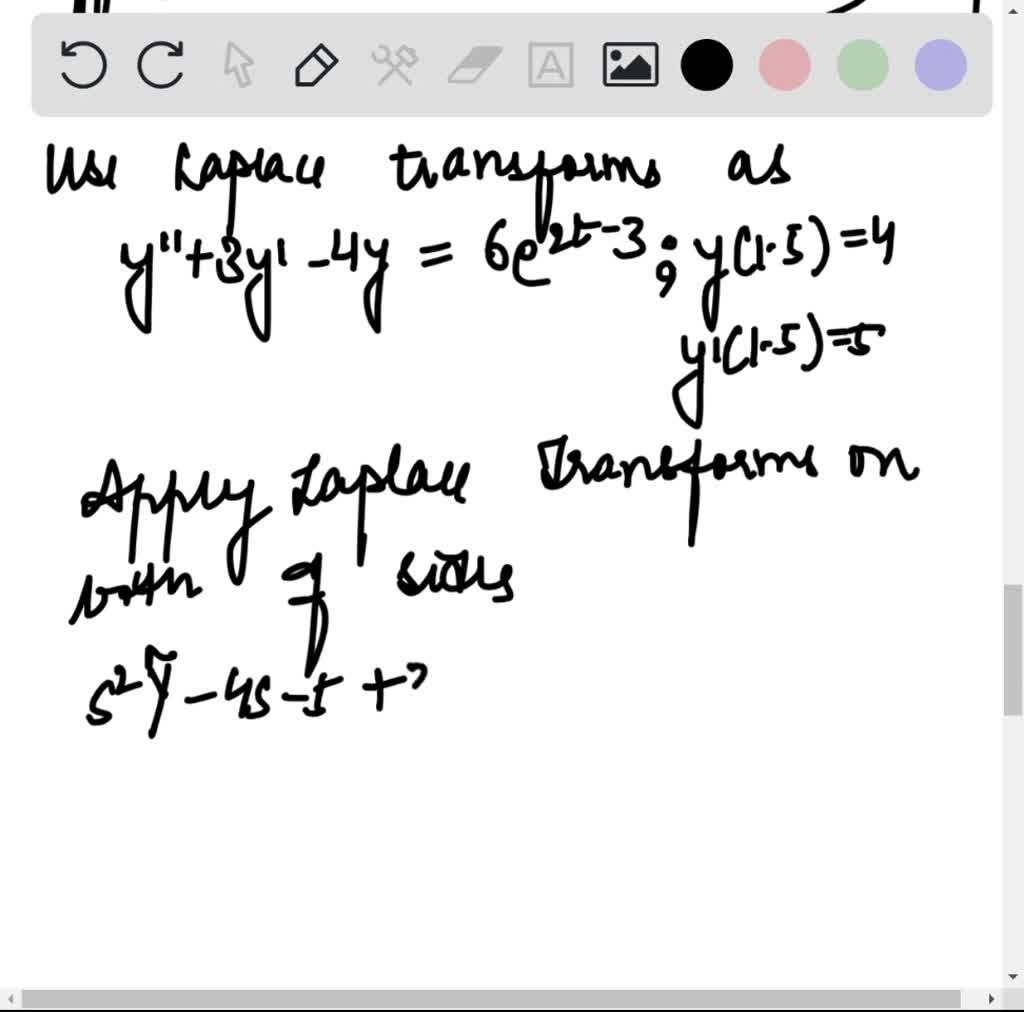 Use Laplace transforms as
y"+3y'-4y = 6e^2t-3; y(1.5)=4
y'(1.5)=5
Apply Laplace Transforms on
both of sides
s²ỹ-4s-5+